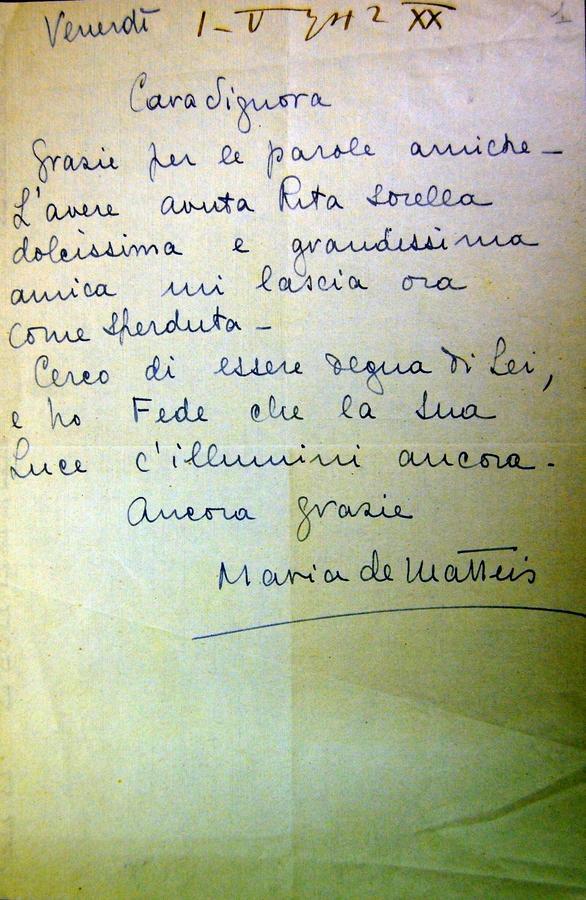 Venerdì 1-V-942 XX
1
Cara Signora
Grazie per le parole amiche-
L'avere avuta Rita sorella
dolcissima e grandissima
amica mi lascia ora
come sperduta-
Cerco di essere degna di Lei,
e ho Fede che la sua
Luce c'illumini ancora.
Ancora grazie
Maria de Matteis